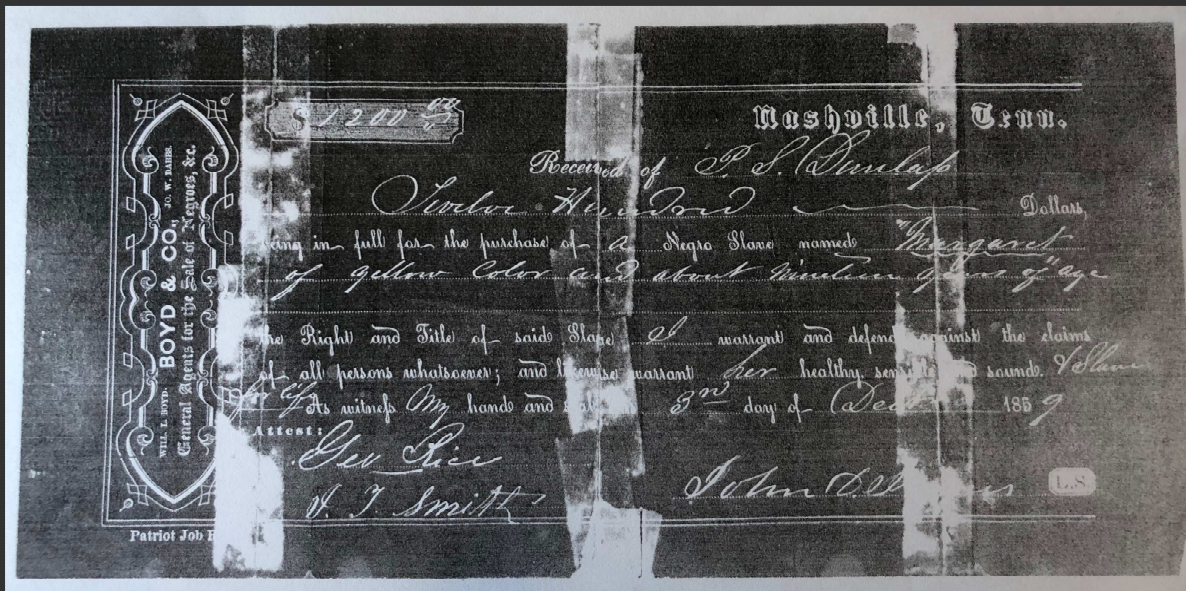 WILL L. BOYD. JO. W. BABBS.
BOYD & CO.,
General Agents for the Sale of Negroes, &c.
$ 1200 00
Nashville, Tenn.
Received of P. S. Dunlap
Twelve Hundred Dollars,
being in full for the purchase of a Negro Slave named "Margaret"
of yellow Color and about nineteen years of age
the Right and Title of said Slave I warrant and defend against the claims
of all persons whatsoever; and likewise warrant her healthy, sensible and sound. & Slave
for life As witness My hand and 3rd day of Dec 1859
Attest:
Geo Rice
J. T. Smith
John L.S.
Patriot Job